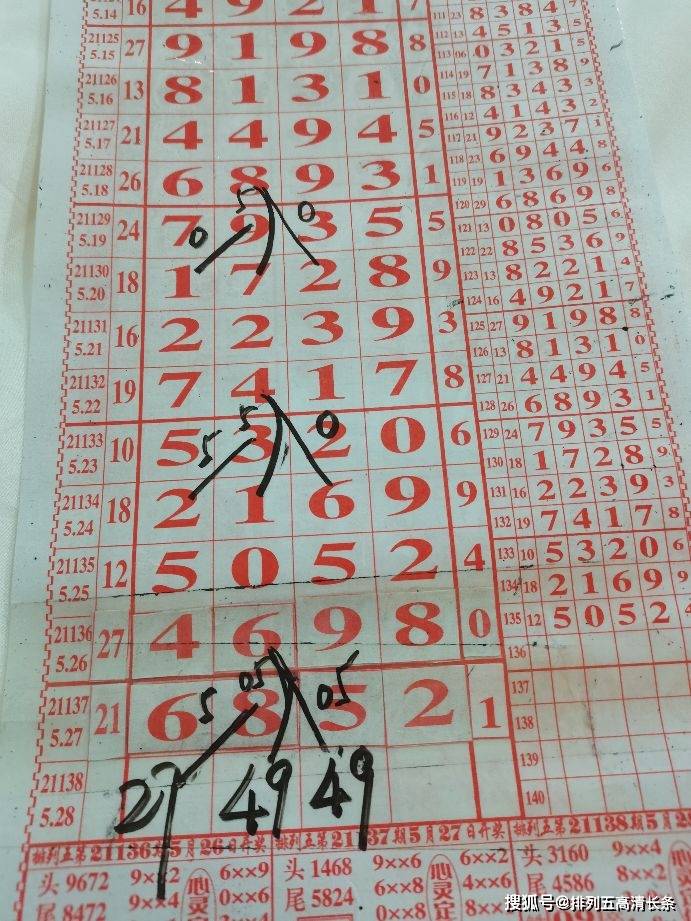 5.14 16 4 9 2 1 7
21125 5.15 27 9 1 9 8 8
21126 5.16 13 8 1 3 1 0
21127 5.17 21 4 4 9 4 5
21128 5.18 26 6 8 9 3 1
5 0 0
21129 5.19 24 7 9 3 5 5
21130 5.20 18 1 7 2 8 9
21131 5.21 16 2 2 3 9 3
21132 5.22 19 7 4 1 7 8
5 5 0
21133 5.23 10 5 3 2 0 6
21134 5.24 18 2 1 6 9 9
21135 5.25 12 5 0 5 2 4
21136 5.26 27 4 6 9 8 0
5 05 05
21137 5.27 21 6 8 5 2 1
21138 5.28
27 49 49
111 23 8 3 8 4 7
112 13 4 5 1 3 5
113 06 0 3 2 1 5
114 19 7 1 3 8 9
115 18 8 3 4 3 3
116 12 4 1 4 3 2
117 21 9 2 3 7 1
118 23 6 9 4 4 8
119 19 1 3 6 9 6
120 29 6 8 6 9 8
121 13 0 8 0 5 6
122 22 8 5 3 6 9
123 13 8 2 2 1 4
124 16 4 9 2 1 7
125 27 9 1 9 8 8
126 13 8 1 3 1 0
127 21 4 4 9 4 5
128 26 6 8 9 3 1
129 24 7 9 3 5 5
130 18 1 7 2 8 9
131 16 2 2 3 9 3
132 19 7 4 1 7 8
133 10 5 3 2 0 6
134 18 2 1 6 9 9
135 12 5 0 5 2 4
136
137
138
139
140
排列五第21136期5月26日开奖
头 9672 9××2 6××9
尾 8472 9××4 0××6
排列五第21137期5月27日开奖
头 1468 9××6 6××2
尾 5824 6××8 4××6
排列五第21138期5月28
头 3160 9××4
尾 4586 8××2
搜狐号@排列五高清长条